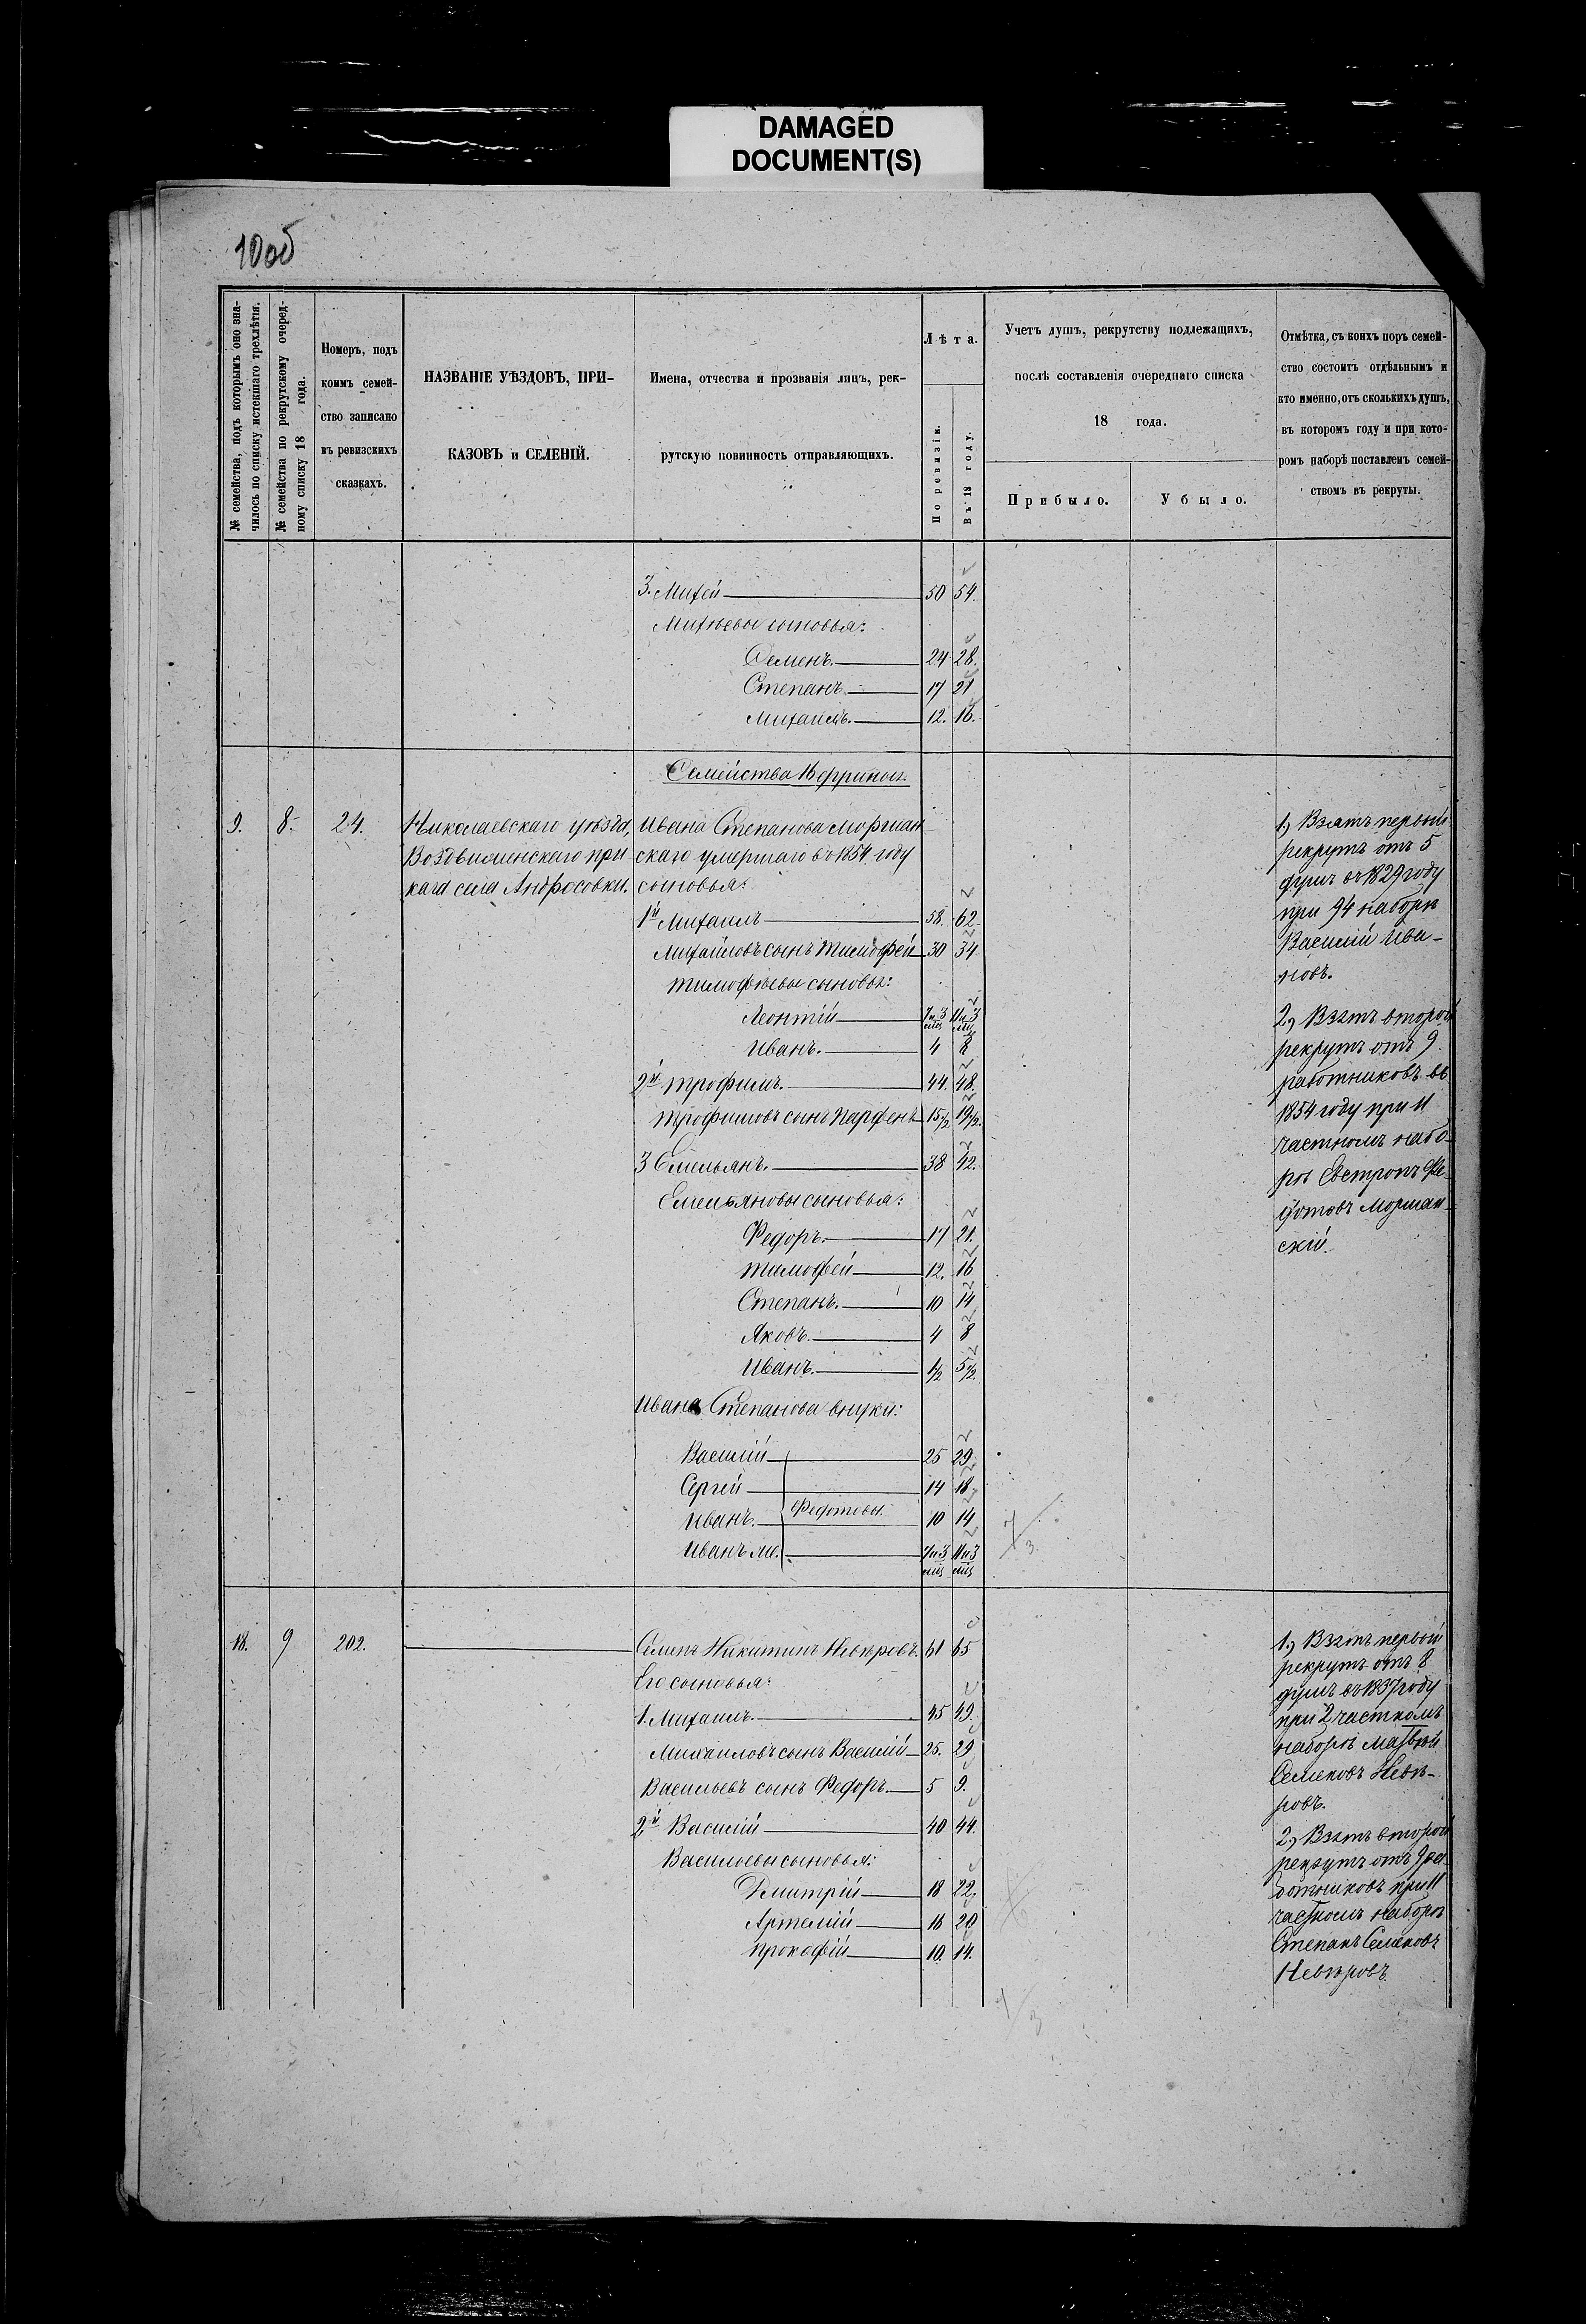 DAMAGED
DOCUMENT(S)
10об
№ семейства, подъ которымъ оно зна-
чилось по списку истекшаго трехлѣтія.
№ семейства по рекрутскому очеред-
ному списку 18 года.
Номеръ, подъ
коимъ семей-
ство записано
въ ревизскихъ
сказкахъ.
НАЗВАНІЕ УѢЗДОВЪ, ПРИ-
КАЗОВЪ и СЕЛЕНІЙ.
Имена, отчества и прозванія лицъ, рек-
рутскую повинность отправляющихъ.
Лѣта.
По ревизіи.
Въ 18 году.
Учетъ душъ, рекрутству подлежащихъ,
послѣ составленія очереднаго списка
18 года.
Прибыло.
Убыло.
Отмѣтка, съ коихъ поръ семей-
ство состоитъ отдѣльнымъ и
кто именно, отъ сколькихъ душъ,
въ которомъ году и при кото-
ромъ наборѣ поставленъ семей-
ствомъ въ рекруты.
3. Михей 50 54.
Михѣевы сыновья:
Семенъ. 24 28.
Степанъ. 17 21
Михаилъ. 12. 16.
Семейства
9. 8. 24.
Николаевскаго уѣзда,
Воздвиженскаго при
каза села Андросовки.
Ивана Степанова Моршан
скаго умершаго въ 1854 году
сыновья:
1й Михаилъ 58. 62
Михайловъ сынъ Тимофей 30 34
Тимофѣевы сыновья:
Леонтій 7 и 3 мѣс 11 и 3 мѣс
Иванъ. 4 8
2й Трофимъ. 44. 48.
Трофимовъ сынъ Парфенъ 15½ 19½.
3 Емельянъ. 38 42.
Емельяновы сыновья:
Федоръ. 17 21.
Тимофей 12. 16
Степанъ. 10 14
Яковъ. 4 8
Иванъ. 1½ 5½.
Ивана Степанова внуки:
Василій 25 29
Сергей 14 18
Иванъ. Федотовы. 10 14
Иванъ мл. 7 и 3 мѣс 11 и 3 мѣс
1) Взятъ первый
рекрутъ отъ 5
душъ въ 1829 году
при 94 наборѣ
Василій Ива-
новъ.
2) Взятъ второй
рекрутъ отъ 9
работниковъ въ
1854 году при 11
частномъ набо-
рѣ Евстропъ Фе-
дотовъ Моршан-
скій.
18. 9 202.
Семенъ Никитинъ Невѣровъ. 61 65
Его сыновья:
1. Михаилъ. 45 49.
Михаиловъ сынъ Василій 25. 29
Васильевъ сынъ Федоръ. 5 9.
2й Василій 40 44.
Васильевы сыновья:
Дмитрій 18 22.
Артемій 16 20
Прокофій 10. 14.
1) Взятъ первый
рекрутъ отъ 8
душъ въ 1837 году
при 2 частномъ
наборѣ Матвѣй
Семеновъ Невѣ-
ровъ.
2) Взятъ второй
рекрутъ отъ 9 ра-
ботниковъ при 11
частномъ наборѣ
Степанъ Семеновъ
Невѣровъ